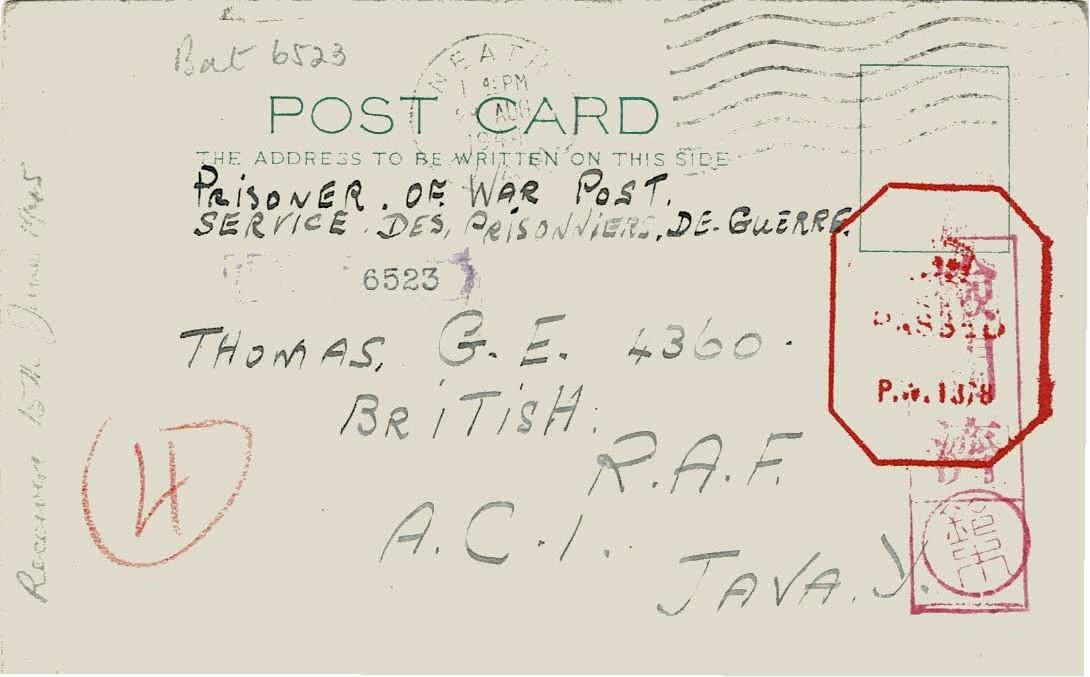 Bat 6523
NEATH
PM
AUG
POST CARD
THE ADDRESS TO BE WRITTEN ON THIS SIDE
PRISONER. OF WAR POST.
SERVICE. DES. PRISONNIERS. DE-GUERRE.
6523
THOMAS. G. E. 4360.
BRITISH.
R.A.F.
A.C.1.
JAVA. J.
4
PASSED
P.W. 1378
檢
閲
濟
Received 15th June 1945